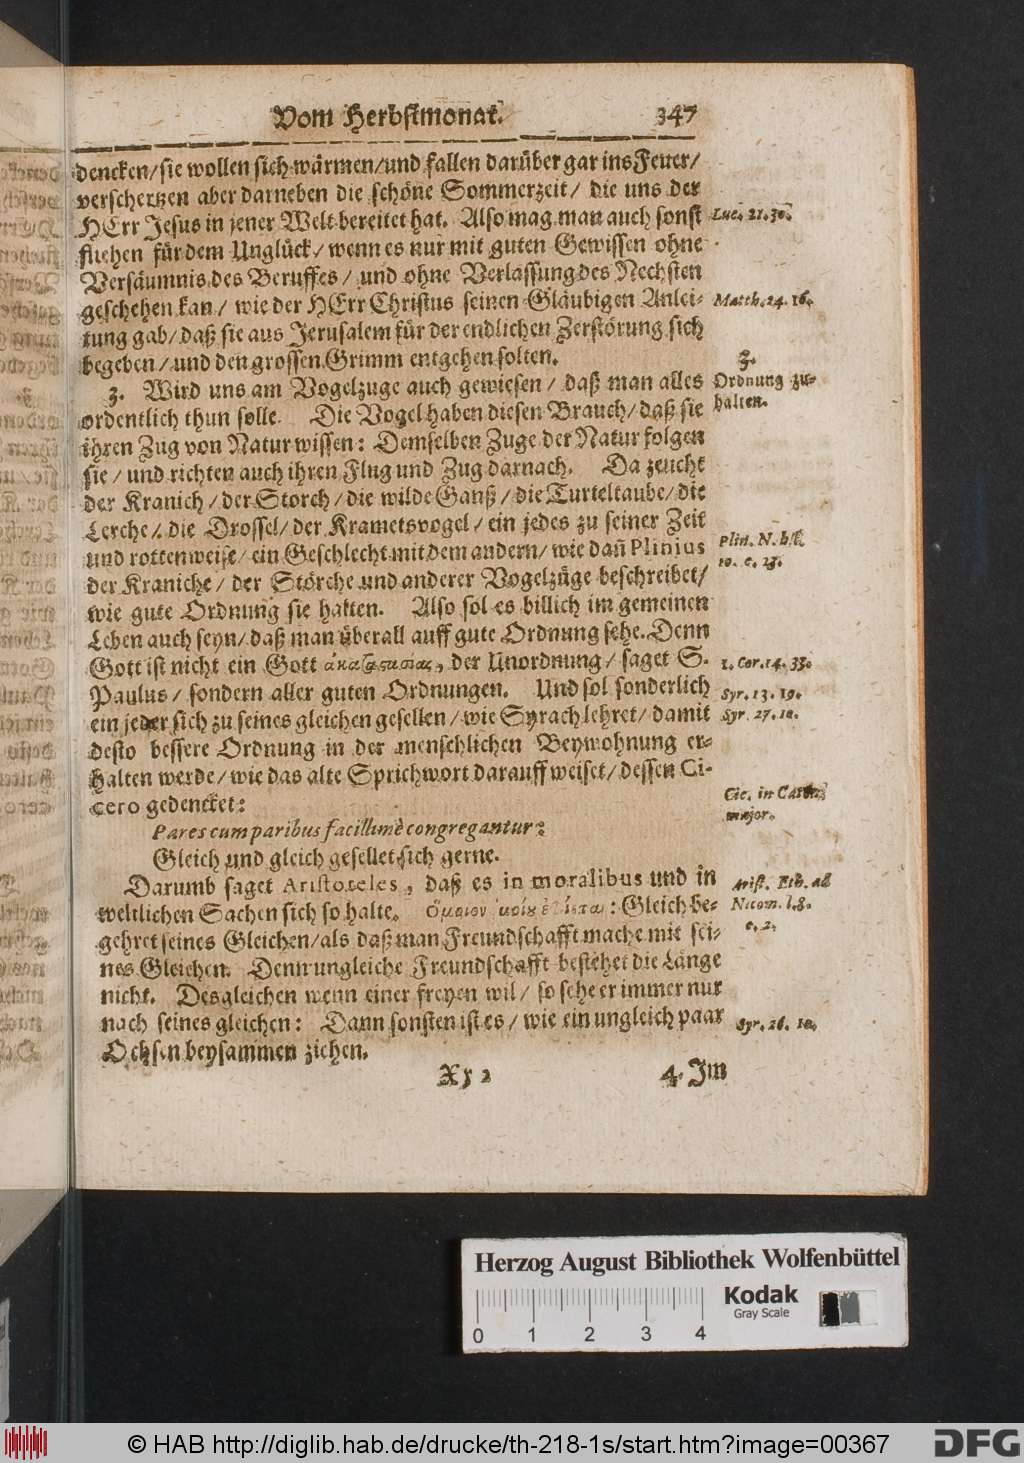 Vom Herbstmonat. 347
dencken/sie wollen sich wärmen/und fallen darüber gar ins Feuer/
verschertzen aber darneben die schöne Sommerzeit/ die uns der
HErr Jesus in jener Welt bereitet hat. Also mag man auch sonst
Luc. 21. 30.
fliehen für dem Unglück/ wenn es nur mit guten Gewissen ohne
Versäumnis des Beruffes/ und ohne Verlassung des Nechsten
geschehen kan/ wie der HErr Christus seinen Gläubigen Anlei-
Matth. 24. 16.
tung gab/ daß sie aus Jerusalem für der endlichen Zerstörung sich
begeben/ und den grossen Grimm entgehen solten.
3.
Ordnung zu
halten.
3. Wird uns am Vogelzuge auch gewiesen/ daß man alles
ordentlich thun solle. Die Vogel haben diesen Brauch/ daß sie
ihren Zug von Natur wissen: Demselben Zuge der Natur folgen
sie/ und richten auch ihren Flug und Zug darnach. Da zeucht
der Kranich/ der Storch/ die wilde Ganß/ die Turteltaube/ die
Lerche/ die Drossel/ der Krametsvogel/ ein jedes zu seiner Zeit
und rottenweise/ ein Geschlecht mit dem andern/ wie dañ Plinius
Plin. N. h. l.
10. c. 23.
der Kraniche/ der Störche und anderer Vogelzüge beschreibet/
wie gute Ordnung sie halten. Also sol es billich im gemeinen
Leben auch seyn/ daß man überall auff gute Ordnung sehe. Denn
Gott ist nicht ein Gott ἀκαταστασίας, der Unordnung/ saget S.
1. Cor. 14. 33.
Paulus/ sondern aller guten Ordnungen. Und sol sonderlich
Syr. 13. 19.
ein jeder sich zu seines gleichen gesellen/ wie Syrach lehret/ damit
Syr. 27. 10.
desto bessere Ordnung in der menschlichen Beywohnung er-
halten werde/ wie das alte Sprichwort darauff weiset/ dessen Ci-
cero gedencket:
Cic. in Caton.
major.
Pares cum paribus facillimè congregantur:
Gleich und gleich gesellet sich gerne.
Darumb saget Aristoteles, daß es in moralibus und in
Arist. Eth. ad
weltlichen Sachen sich so halte. Ὅμοιον : Gleich be-
Nicom. l. 8.
c. 2.
gehret seines Gleichen/ als daß man Freundschafft mache mit sei-
nes Gleichen. Denn ungleiche Freundschafft bestehet die Länge
nicht. Desgleichen wenn einer freyen wil/ so sehe er immer nur
nach seines gleichen: Dann sonsten ist es/ wie ein ungleich paar
Syr. 26. 10.
Ochsen beysammen ziehen.
Xx 2 4. Im
Herzog August Bibliothek Wolfenbüttel
Kodak
Gray Scale
0 1 2 3 4
© HAB http://diglib.hab.de/drucke/th-218-1s/start.htm?image=00367
DFG